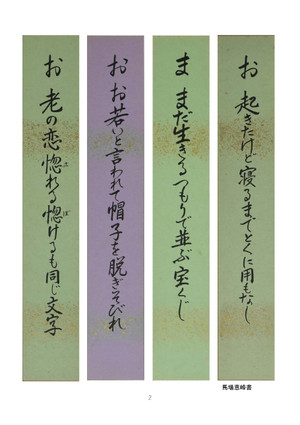 お 起きたけど寝るまでとくに用もなし
ま まだ生きるつもりで並ぶ宝くじ
お お若いと言われて帽子を脱ぎそびれ
お 老の恋惚れる惚けるも同じ文字
ほ
ぼ
馬場恵峰書
2